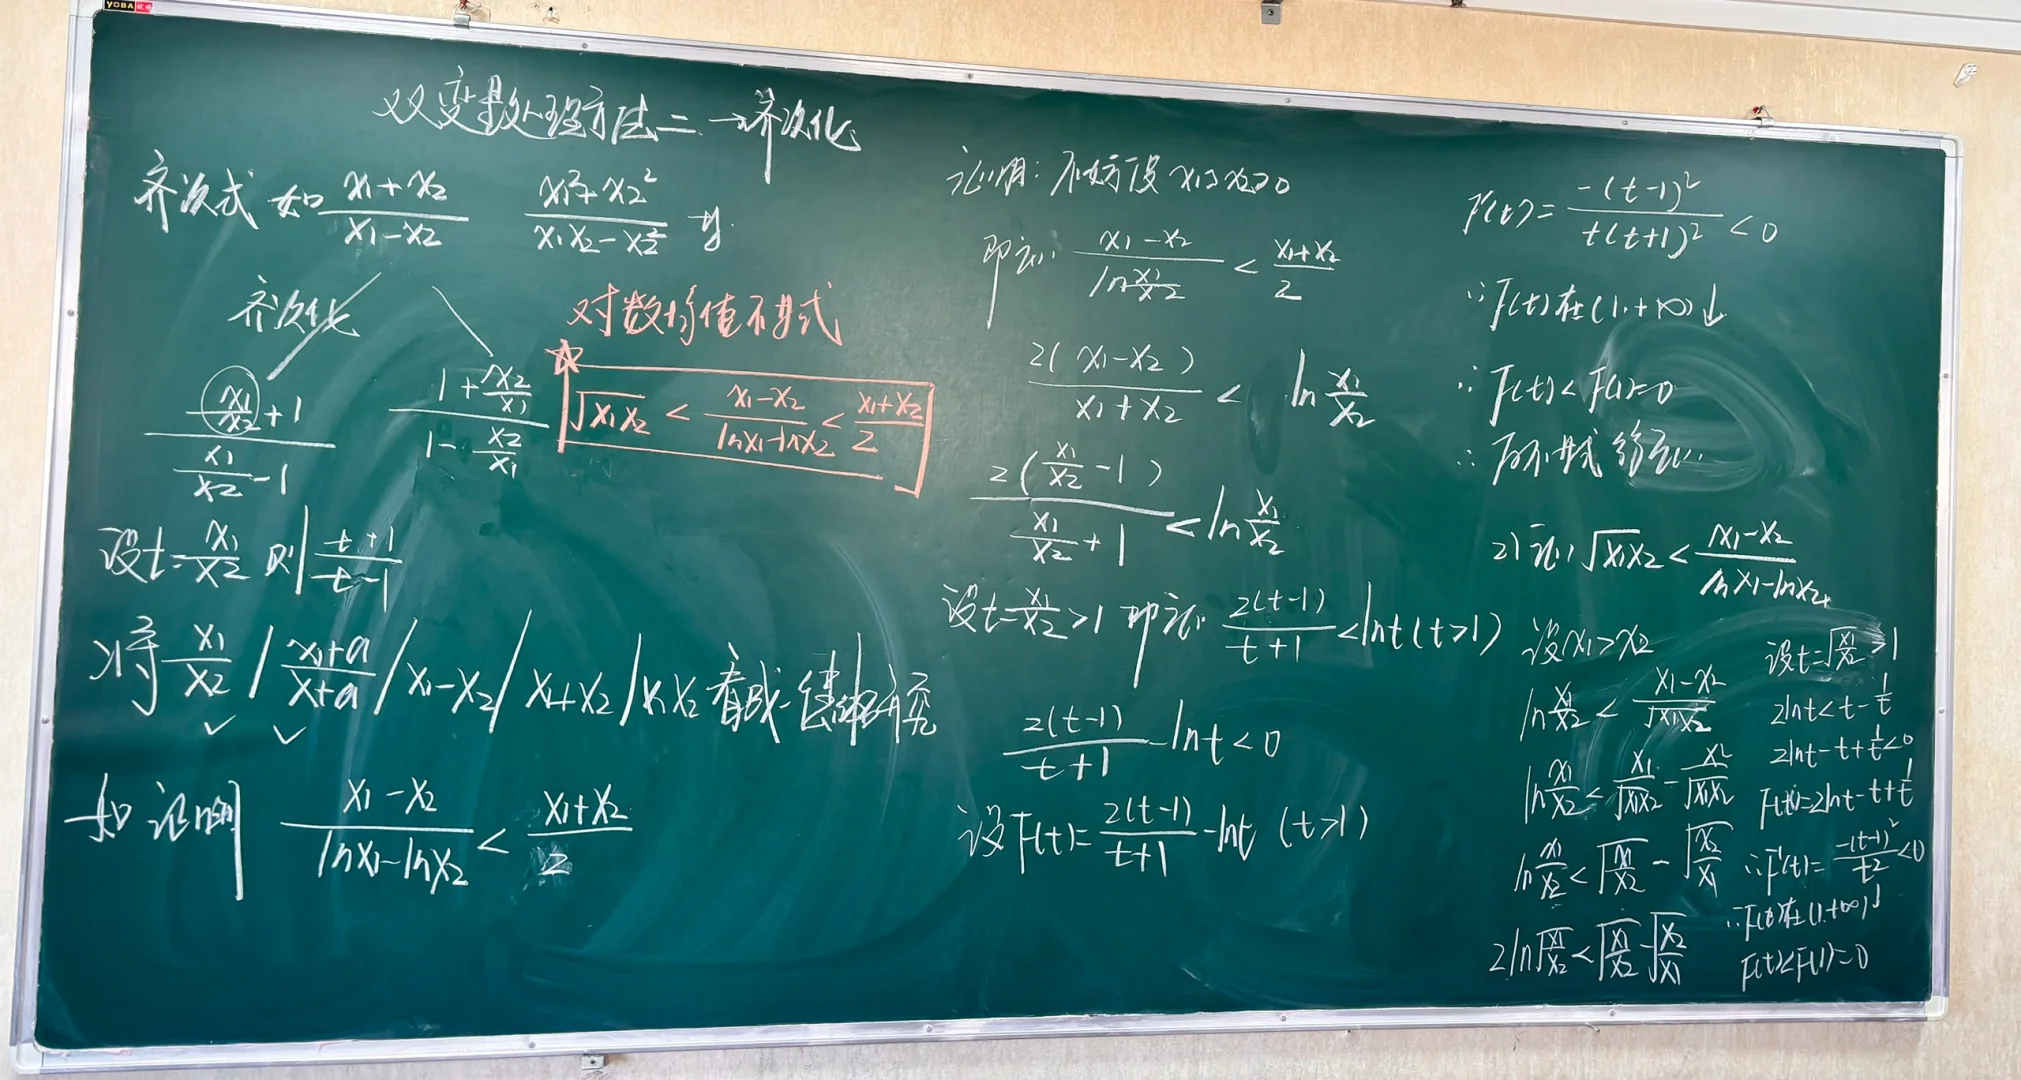 YOBA
双变量处理方法二 → 齐次化
齐次式 如 (x₁+x₂)/(x₁-x₂) (x₁²+x₂²)/(x₁x₂-x₂²) 等.
齐次化
(x₁/x₂+1)/(x₁/x₂-1) (1+x₂/x₁)/(1-x₂/x₁)
对数均值不等式
☆ √(x₁x₂) < (x₁-x₂)/(lnx₁-lnx₂) < (x₁+x₂)/2
设t=x₁/x₂ 则 (t+1)/(t-1)
将 x₁/x₂ / (x₁+a)/(x+a) / x₁-x₂ / x₁+x₂ / x₁x₂ 看成一个整体研究
✓ ✓
如 证明 (x₁-x₂)/(lnx₁-lnx₂) < (x₁+x₂)/2
证明: 不妨设 x₁>x₂>0
即证: (x₁-x₂)/ln(x₁/x₂) < (x₁+x₂)/2
2(x₁-x₂)/(x₁+x₂) < ln x₁/x₂
2(x₁/x₂-1)/(x₁/x₂+1) < ln x₁/x₂
设t=x₁/x₂>1 即证: 2(t-1)/(t+1) < lnt (t>1)
2(t-1)/(t+1) - lnt < 0
设F(t)=2(t-1)/(t+1) - lnt (t>1)
F'(t)= -(t-1)²/(t(t+1)²) < 0
∵F(t)在(1,+∞)↓
∴F(t)<F(1)=0
∴ 原不等式
2) 证: √(x₁x₂) < (x₁-x₂)/(lnx₁-lnx₂)
设x₁>x₂
ln x₁/x₂ < (x₁-x₂)/√(x₁x₂)
ln x₁/x₂ < x₁/√(x₁x₂) - x₂/√(x₁x₂)
ln x₁/x₂ < √(x₁/x₂) - √(x₂/x₁)
2ln√(x₁/x₂) < √(x₁/x₂) - √(x₂/x₁)
设t=√(x₁/x₂)>1
2lnt < t - 1/t
2lnt - t + 1/t < 0
F(t)=2lnt - t + 1/t
∴F'(t)= -(t-1)²/t² < 0
∵F(t)在(1,+∞)↓
F(t)<F(1)=0